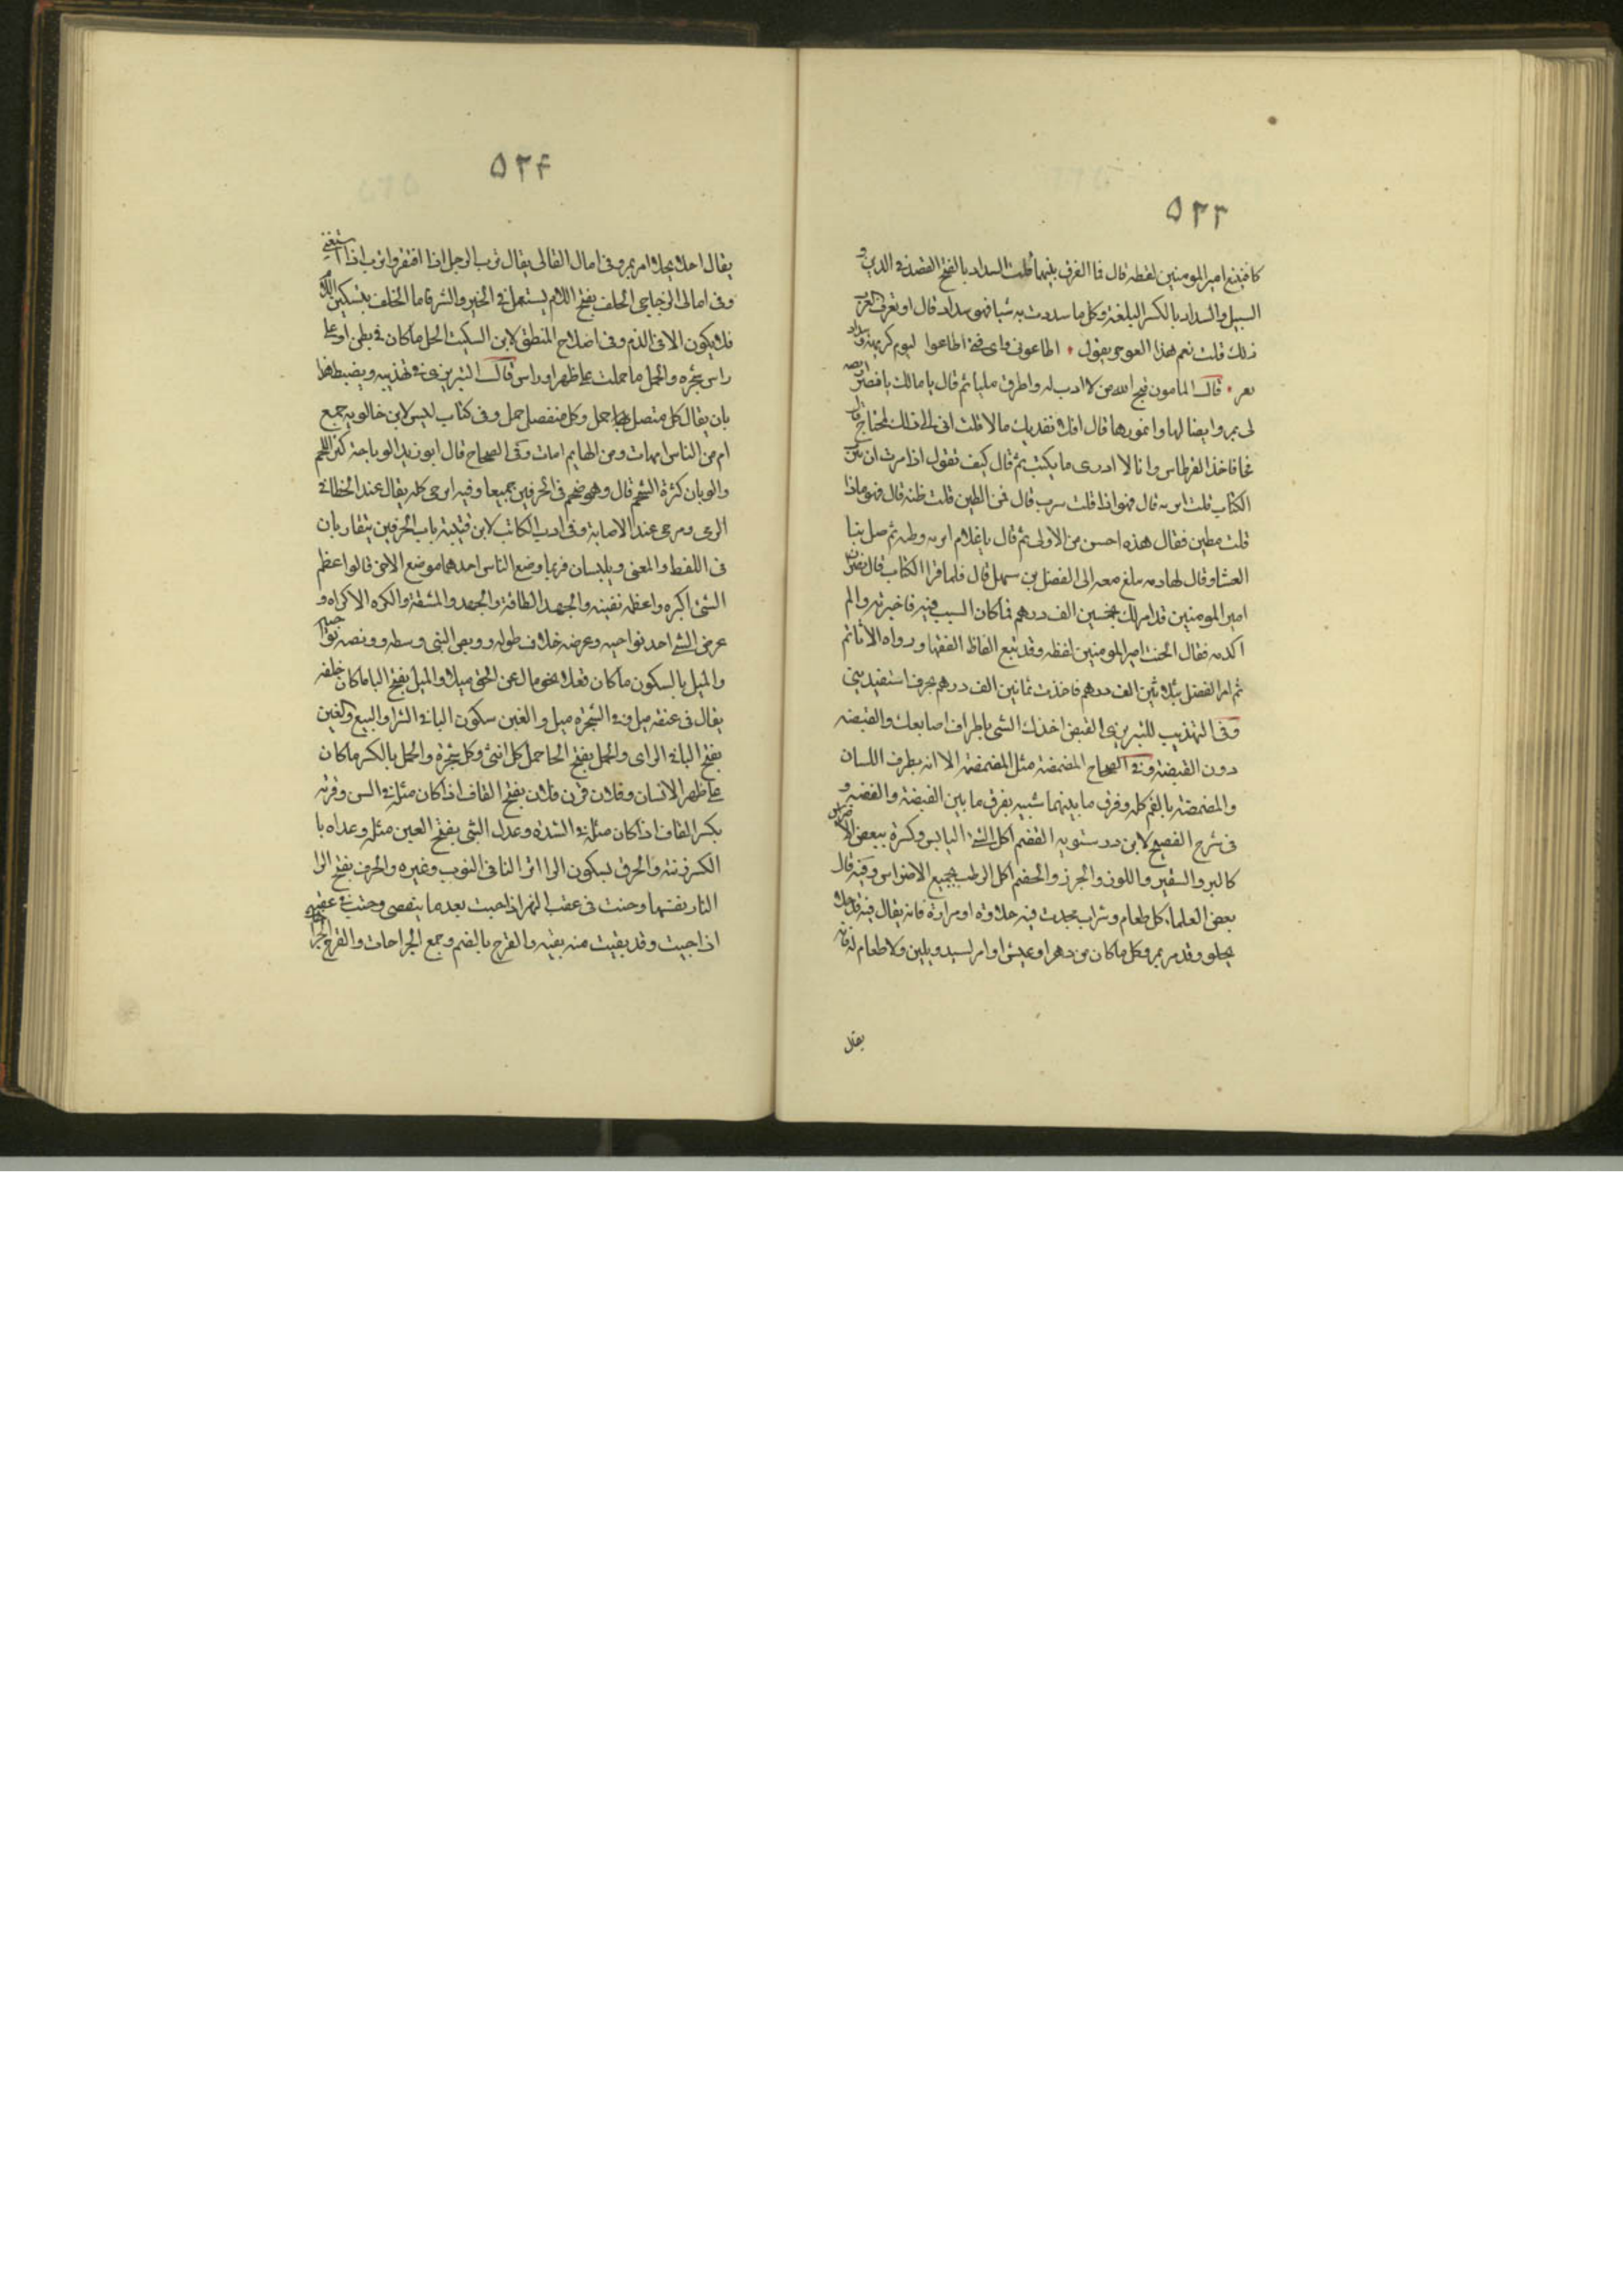 ٥٢٣
كا فتتبع امير المومنين لفظه قال فما الفرق بينهما قلت السداد بالفتح القصد فى الدين و
السبيل والسداد بالكسر البلغة وكل ما سددت به شيا فهو سداد قال او تعرف العرب
ذلك قلت نعم هذا العوجى يقول اطاعونى واى فتى اطاعوا ليوم كريهة وسداد
ثغر قال المامون قبح الله من لا ادب له واطرق مليا ثم قال ما مالك يا نضر
قال
فاخذ القرطاس وانا لا ادرى ما يكتب ثم قال كيف تقول اذا امرت ان تترب
الكتاب قلت اتربه قال فهو اذا قلت مترب قال فمن الطين قلت طنه قال فهو ماذا
قلت مطين فقال هذه احسن من الاولى ثم قال يا غلام اتربه وطنه ثم صلى بنا
العشا وقال لخادمه بلغ معه الى الفضل بن سهل قال فلما قرا الكتاب قال يا نضر ان
امير المومنين قد امر لك بخمسين الف درهم فما كان السبب فيه فاخبرته ولم
اكذبه فقال الحنت امير المومنين لفظه وقد تتبع الفاظ الفقها ورواه الاثار ثم
ثم امر الفضل بثلاثين الف درهم فاخذت ثمانين الف درهم بحرف استفيد منى
وفى التهذيب للتبريزى القبض اخذك الشى باطراف اصابعك والقبضه
دون القبضة وفى الصحاح المصمصة مثل المضمضة الا انه بطرف اللسان
والمضمضة بالفم كله وفرق ما بينهما شبيه بفرق ما بين القبضة والقبضه و
فى شرح الفصيح لابن درستويه القضم اكل الشى اليابس وكسره ببعض الاضراس
كالبر والسقير واللوز والجرز والخضم اكل الرطب بجميع الاضراس وفيه قال
بعض العلماء كل طعام وشراب تحدث فيه حلاوة او مرارة فانه يقال فيه قد حلا
يحلو وقد مر يمر وكل ما كان من دهر او عيش او امر يشتد ويلين ولا طعام له فانه
يقال
٥٢٤
يقال احلا يحلا امر يمر وفى امال القالى يقال ترب الرجل اذا افتقر واترب اذا استغنى
وفى امالى الزجاجى الخلف بفتح اللام يستعمل فى الخير والشر فاما الخلف بتسكين اللام
فلا يكون الا فى الذم وفى اصلاح المنطق لابن السكيت الحمل ما كان فى بطن او على
راس شجره والحمل ما حملت على ظهر او راس قال التبريزى فى تهذيبه ويضبط هذا
بان يقال كل متصل حمل وكل منفصل حمل وفى كتاب ليس لابن خالويه جمع
ام من الناس امهات ومن البهايم امات وفى الصحاح قال ابو زيد الوباجة كثرة اللحم
والوبان كثرة الشحم قال وهو ضخم فى الحرفين جميعا وفيه ارحى كله يقال عند الخطا فى
الرمى ومرحى عند الاصابة وفى ادب الكاتب لابن قتيبة باب الحرفين يتقاربان
فى اللفظ والمعنى ويلتبسان فربما وضع الناس احدهما موضع الاخر قالوا عظم
الشئ اكبره وعظمه نفسه والجهد الطاقة والجهد المشقة والكره الاكراه و
عرض الشئ احد نواحيه وعرضه خلاف طوله وربض الشى وسطه وربضه نواحيه
والميل بالسكون ما كان فعلا نحو مال عن الحق ميلا والميل بفتح اليا ما كان خلقه
يقال فى عنقه ميل وفى الشجرة ميل والغبن سكون البا فى الشرا والبيع والغبن
بفتح البا فى الراى والحمل بفتح الحا حمل كل انثى وكل شجرة والحمل بالكسر ما كان
على ظهر الانسان وفلان قرن فلان بفتح القاف اذا كان مثله فى السن وقرنه
بكسر القاف اذا كان مثله فى الشدة وعدل الشى بفتح العين مثله وعدله با
الكسر زنته والحرق بسكون الرا اثر النار فى الثوب وغيره والحرق بفتح الرا
النار نفسها وجئت فى عقب الشهر اذا جئت بعد ما ينقضى وجئت فى عقبه
اذا جئت وقد بقيت منه بقيه والقرح بالضم وجع الجراحات والقرح الجراح